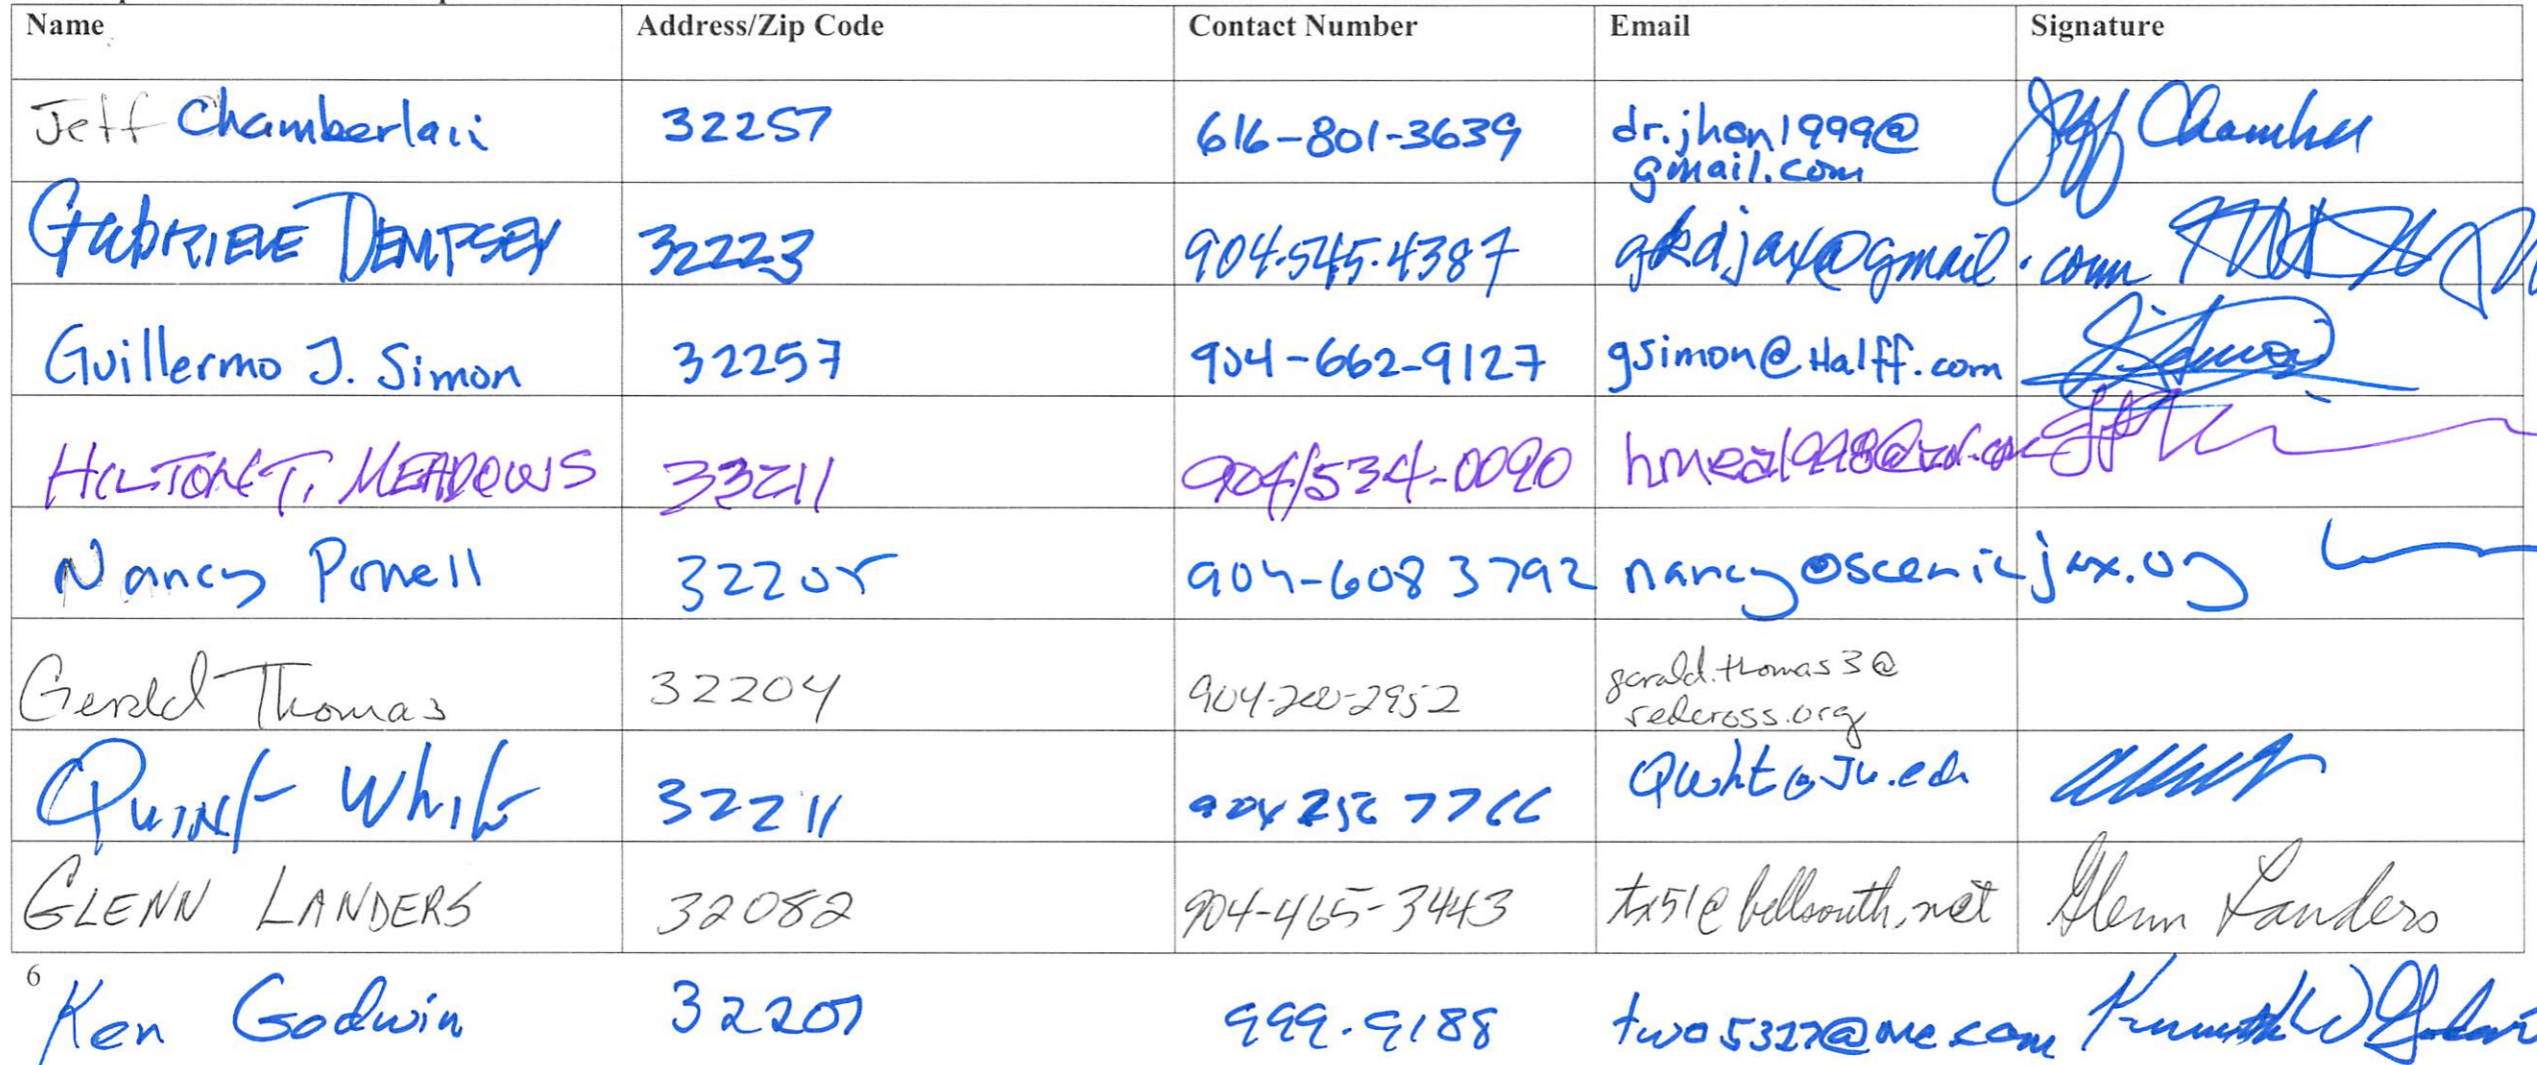 Name Address/Zip Code Contact Number Email Signature
Jeff Chamberlain 32257 616-801-3639 dr.jhon1999@
gmail.com
GABRIELE DEMPSEY 32223 904.545.4387 gkdjax@gmail.com
Guillermo J. Simon 32257 904-662-9127 gsimon@Halff.com
HILTON T. MEADOWS 33211 904/534-0090
Nancy Powell 32205 904-608 3792 nancy@scenicjax.org
Gerald Thomas 32204 904-200-2952 gerald.thomas3@
redcross.org
Quint White 32211 904 256 7766
GLENN LANDERS 32082 904-465-3443 tx51@bellsouth.net Glenn Landers
6
Ken Godwin 32207 999-9188 two5327@me.com